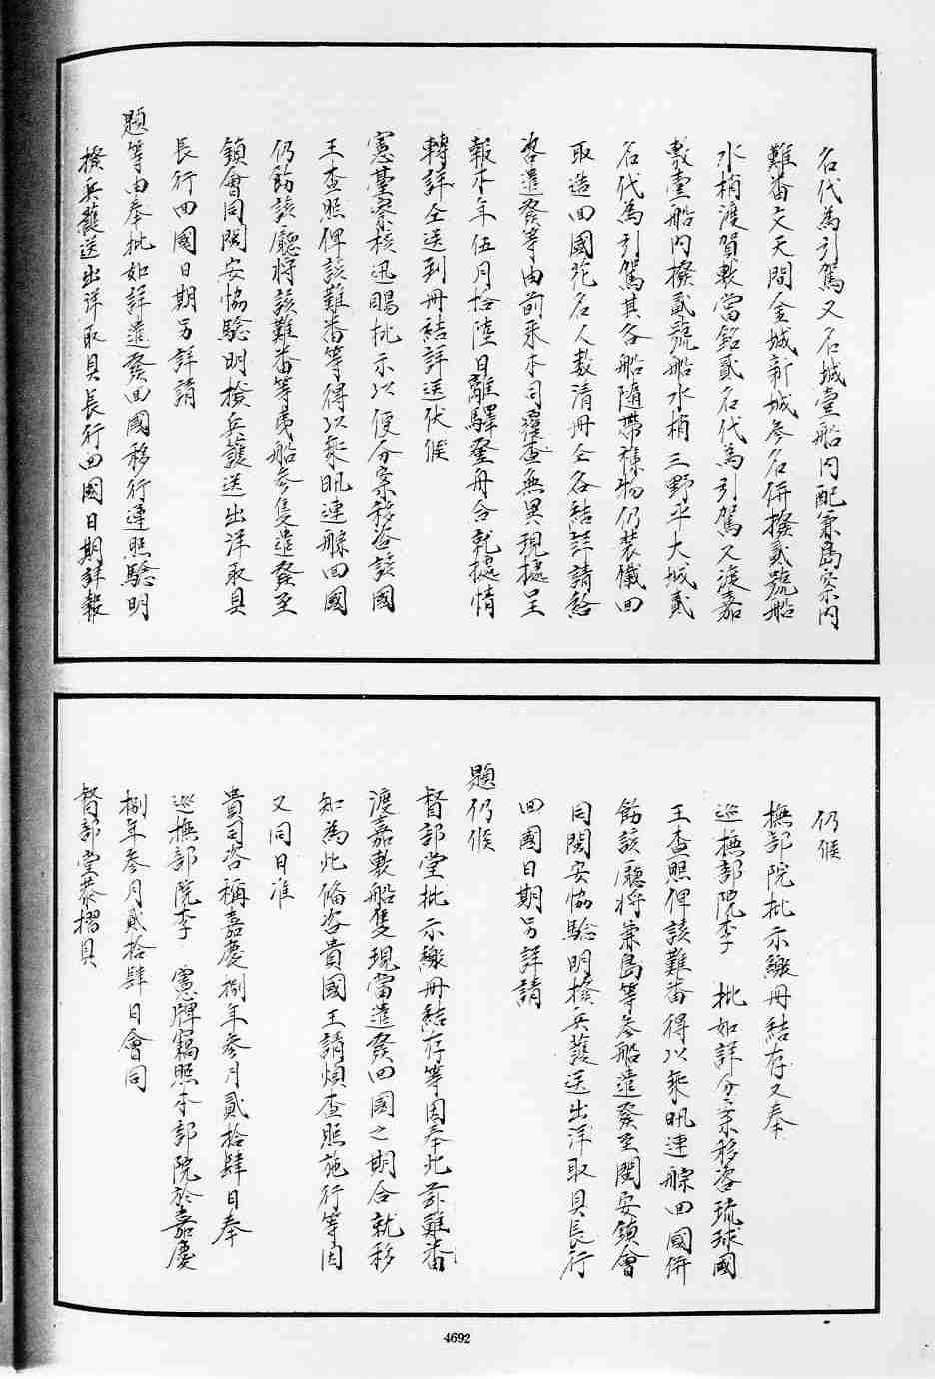 名代為引駕又名城臺船内配兼島案内
難番文天間金城新城參名併撥貳號船
水梢渡賀數當銘貳名代為引駕又渡嘉
敷臺船内撥貳號船水梢三野平大城貳
名代為引駕其各船隨帶襍物仍裝儎回
取造回國花名人数清册仝各結詳請愁
咨遣發等由前來本司覆查無異現據呈
報本年伍月拾陸日離驛登舟合就據情
轉詳仝送到册結詳送伏候
憲臺察核迅賜批示以便分案移咨該國
王查照俾該難番等得以乘汛連䑸回國
仍飭該廳将該難番等夷船參隻遣發至
鎮會同閩安恊驗明撥兵護送出洋取具
長行回國日期另詳請
題等由奉批如詳遣發回國移行遵照驗明
撥兵護送出洋取具長行回國日期詳報
仍候
撫部院批示繳册結存又奉
巡撫部院李 批如詳分案移咨琉球國
王查照俾該難番得以乘汛連䑸回國併
飭該廳将兼島等參船遣發至閩安鎮會
同閩安恊驗明撥兵護送出洋取具長行
回國日期另詳請
題仍候
督部堂批示繳册結存等因奉此查難番
渡嘉敷船隻現當遣發回國之期合就移
知為此備咨貴國王請煩查照施行等因
又同日准
貴司咨稱嘉慶捌年參月貳拾肆日奉
巡撫部院李 憲牌竊照本部院於嘉慶
捌年參月貳拾肆日會同
督部堂恭摺具
4692